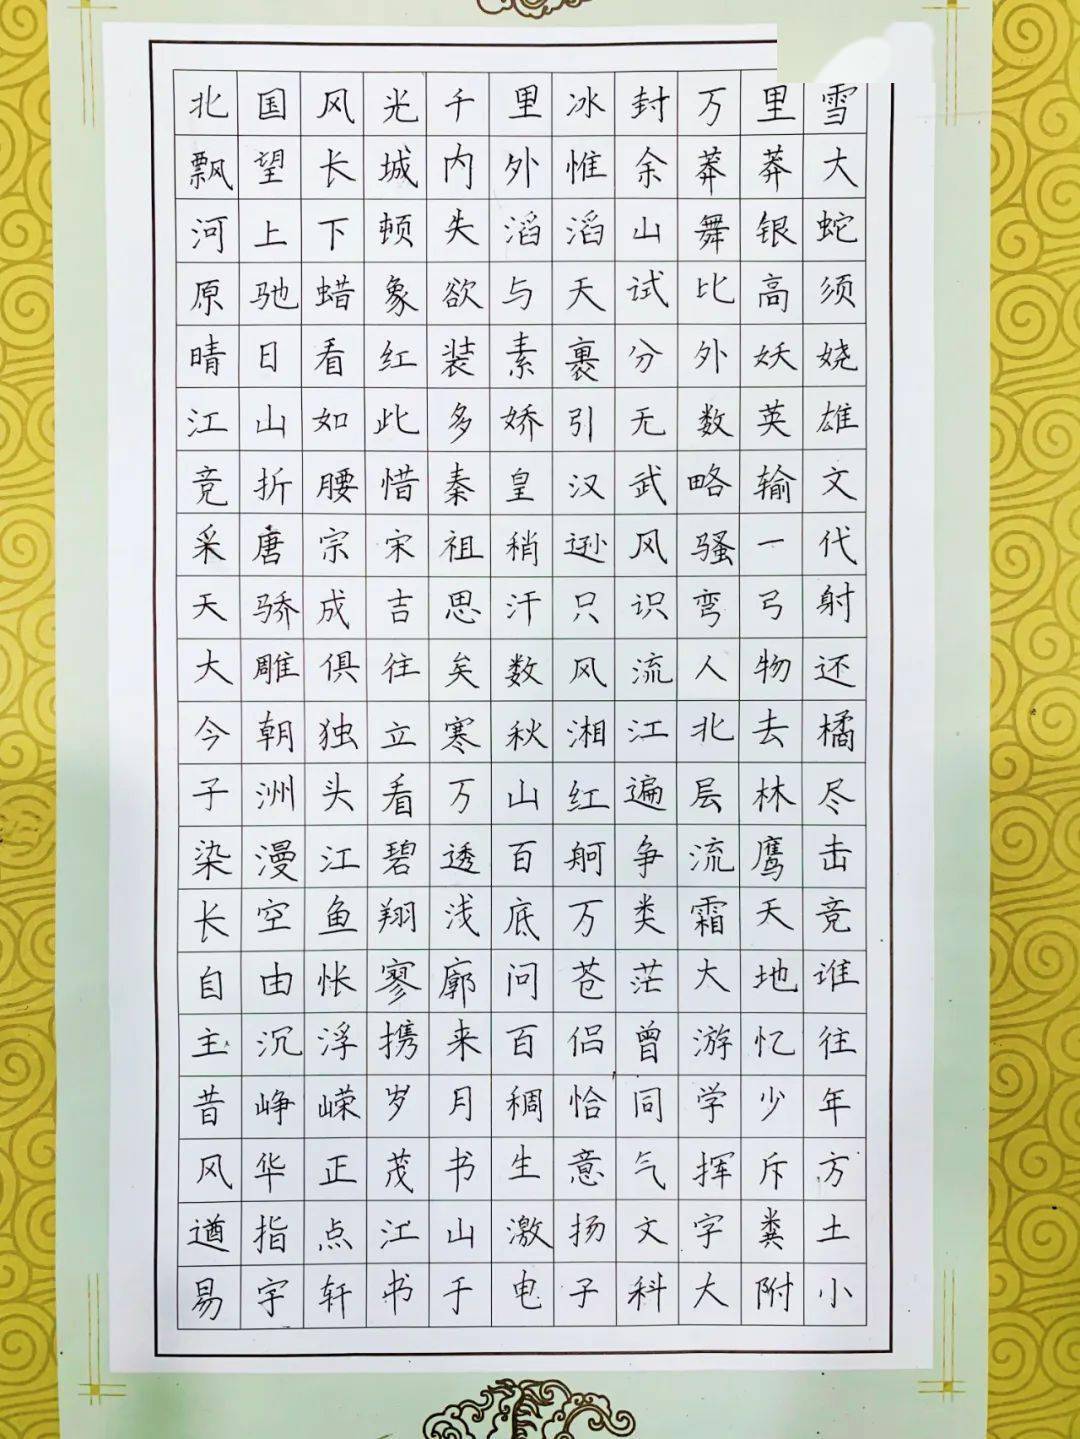 北国风光千里冰封万里雪
飘望长城内外惟余莽莽大
河上下顿失滔滔山舞银蛇
原驰蜡象欲与天试比高须
晴日看红装素裹分外妖娆
江山如此多娇引无数英雄
竞折腰惜秦皇汉武略输文
采唐宗宋祖稍逊风骚一代
天骄成吉思汗只识弯弓射
大雕俱往矣数风流人物还
今朝独立寒秋湘江北去橘
子洲头看万山红遍层林尽
染漫江碧透百舸争流鹰击
长空鱼翔浅底万类霜天竞
自由怅寥廓问苍茫大地谁
主沉浮携来百侣曾游忆往
昔峥嵘岁月稠恰同学少年
风华正茂书生意气挥斥方
遒指点江山激扬文字粪土
易宇轩书于电子科大附小